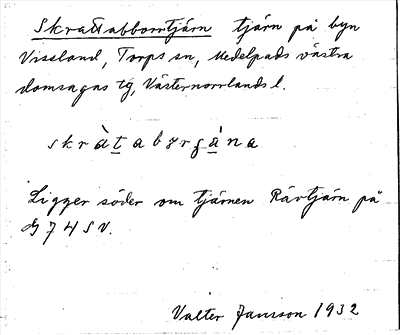 Skrattabborrtjärn tjärn på byn
Vissland, Torps sn, Medelpads västra
domsagas tg, Västernorrlands l.
Ligger söder om tjärnen Rävtjärn på
G 74 SV.
Valter Jansson 1932